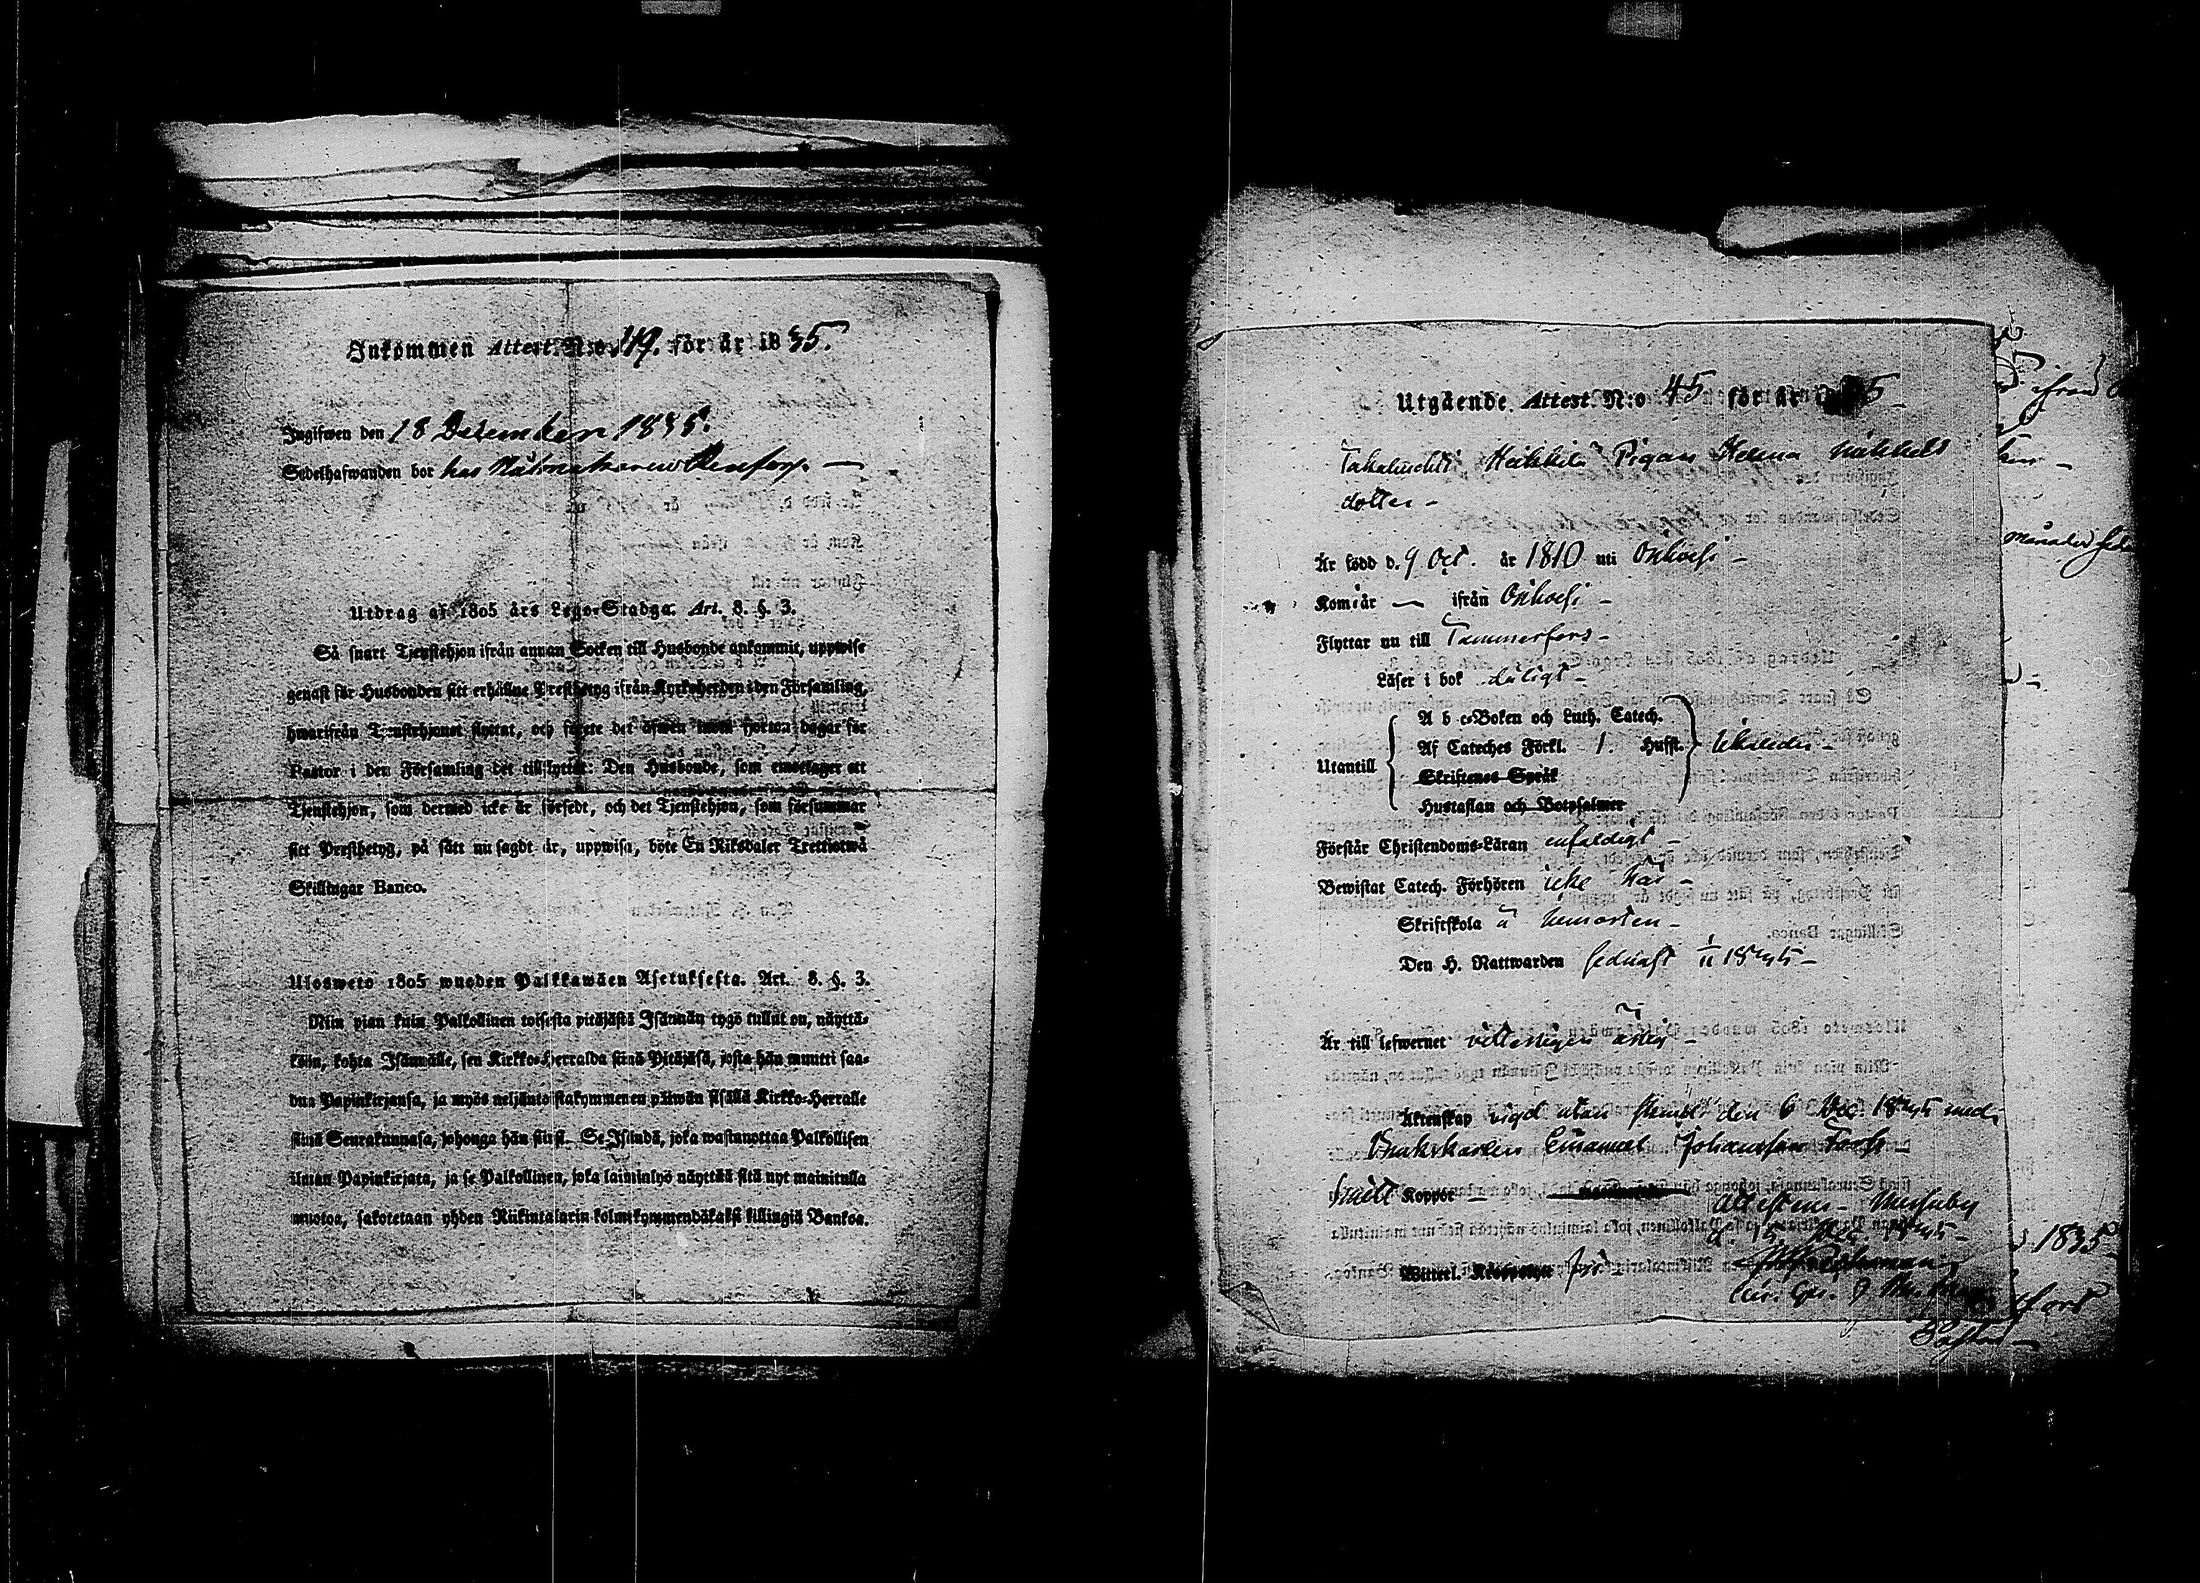 Inkommen Attest. N:o 49. för år 1835.
Ingifwen den 18 December 1835.
Sedelhafwanden bor hos
Utdrag af 1805 års Lego-Stadga. Art. 8. §. 3.
Så snart Tjenstehjon ifrån annan Socken till Husbonde ankommit, uppwise
genast för Husbonden sitt erhållne Prestbetyg ifrån Kyrkoherden i den Församling,
hwarifrån Tjenstehjonet flyttat, och förete det äfwen inom fjorton dagar för
Pastor i den Församling det tillflyttar. Den Husbonde, som emottager ett
Tjenstehjon, som dermed icke är försedt, och det Tjenstehjon, som försummar
sitt Prestbetyg, på sätt nu sagdt är, uppwisa, böte En Riksdaler Trettiotwå
Skillingar Banco.
Ulosweto 1805 wuoden Palkkawäen Asetuksesta. Art. 8. §. 3.
Niin pian kuin Palkollinen toisesta pitäjästä Isännän tygö tullut on, näyttä-
köön, kohta Isännälle, sen Kirkko-Herralda siinä Pitäjäsä, josta hän muutti saa-
dun Papinkirjansa, ja myös neljäntoistakymmenen päiwän sisällä Kirkko-Herralle
siinä Seurakunnasa, johonga hän siirsi. Se Isändä, joka wastanottaa Palkollisen
ilman Papinkirjata, ja se Palkollinen, joka laiminlyö näyttää sitä nyt mainitulla
muotoa, sakotetaan yhden Riikintalarin kolmekymmendäkaksi killingiä Bankoa.
Utgående Attest N:o 45 för år 5
Takahuchti Heikkilä Pigan Helena Mickels
dotter -
Är född d. 9 Oct. år 1810 uti Orihvesi -
Kom i år — ifrån Orihvesi -
Flyttar nu till Tammerfors -
Läser i bok dåligt -
A b c-Boken och Luth. Catech.
Utantill Af Cateches Förkl. 1. Hufst.
Skriftenes Språk
Hustaflan och Botpsalmer
Förstår Christendoms-Läran enfaldigt -
Bewistat Catech. Förhören icke här -
Skriftskola å hemorten -
Den H. Nattwarden sednast 1/11 1835 -
Är till lefwernet
Äktenskap vigd utan den 6 Dec. 1835 med
Emanuel Johansson Forss -
Koppor -
Attesteras - Messuby
Wittrel. Kroppslyte fri -
månader
1835